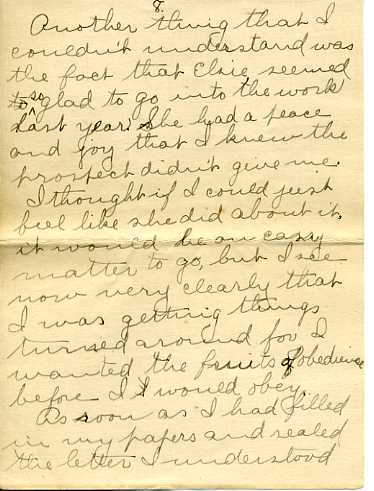 8.
Another thing that I
couldn't understand was
the fact that Elsie, seemed
to so glad to go into the work
last year. She had a peace
and joy that I knew the
prospect didn't give me.
I thought if I could just
feel like she did about it,
it would be an easy
matter to go, but I see
now very clearly that
I was getting things
turned around for I
wanted the fruits of obedience
before I would obey.
As soon as I had filled
in my papers and sealed
the letter I understood